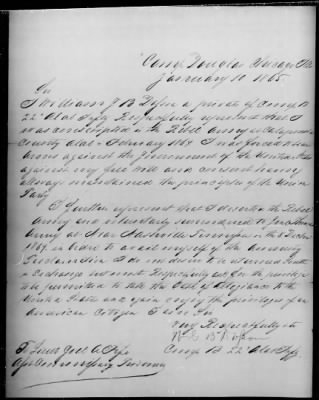 Camp Douglas Chicago Ills
January 10 1865
Sir
I William J B a private of Comp B
22" Ala Respectfully represent that I
was conscripted in the Rebel Army in
County Ala in February 1864 I was forced to bear
arms against the Government of the United States
against my free will and consent having
always maintained the principles of the Union
Party
I further represent that I deserted the Rebel
Army and voluntarily surrendered to
Army at Near Nashville Tennessee in December
1864 in order to avail myself of the Amnesty
Proclamation I do not desire to be
exchange but most Respectfully ask for the privilege
to be permitted to take the Oath of Allegiance to the
United States and again enjoy the privileges of an
American Citizen I am Sir
Very Respectfully
W J B
To Lieut Joel A Fife Comp B 22" Ala